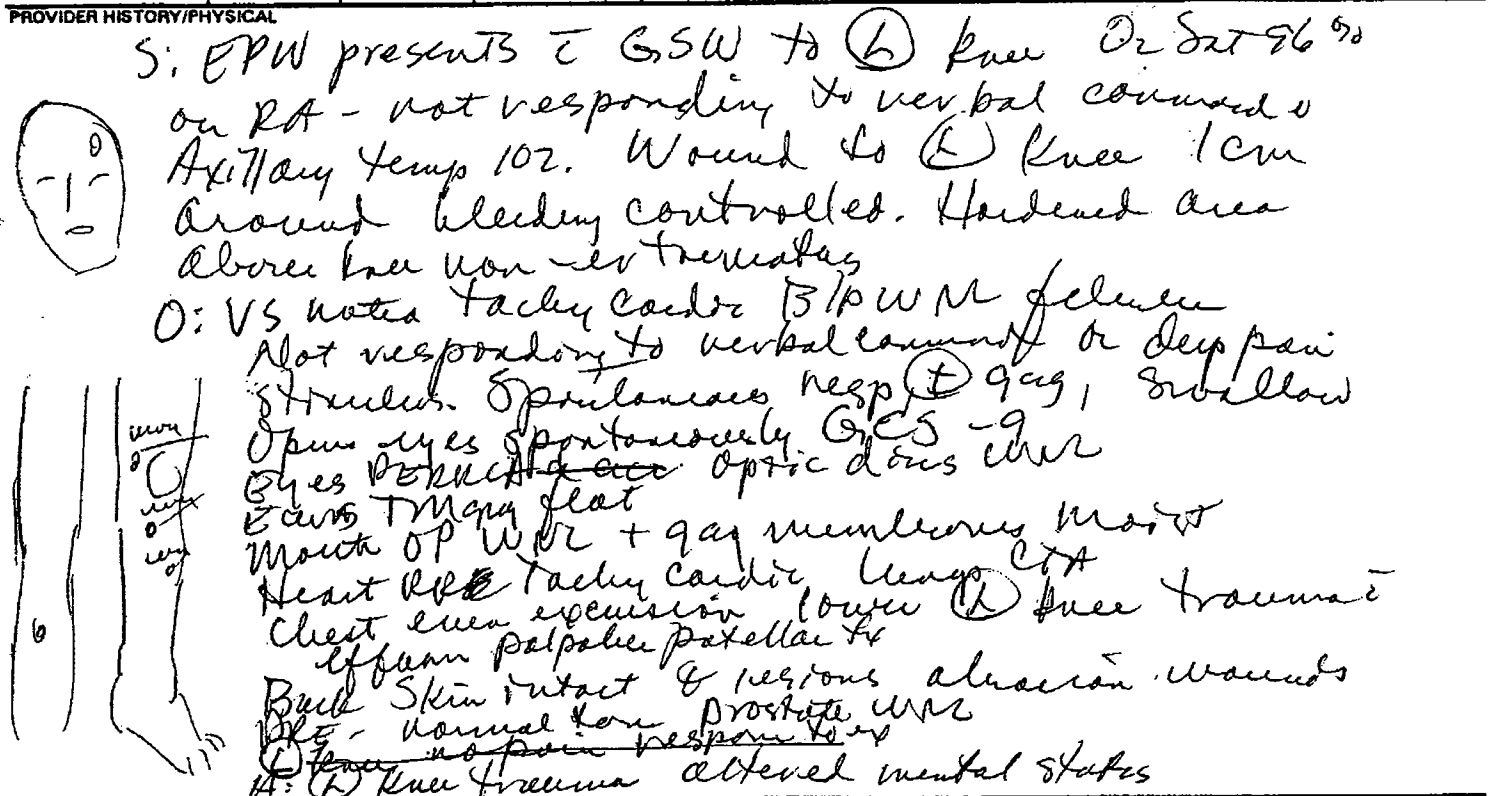 PROVIDER HISTORY/PHYSICAL
S: EPW presents c̄ GSW to Ⓛ knee O2 Sat 96%
on RA - not responding to verbal command
Axillary temp 102. Wound to Ⓛ knee 1cm
around bleeding controlled. Hardened area
above knee non-
O: VS noted tachycardic B/P WNL febrile
Not responding to verbal command or deep pain
stimulus. Spontaneous resp, ⊕ gag, swallow
Opens eyes spontaneously GCS - 9
Eyes PERRLA optic discs WNL
Ears TM flat
Mouth OP WNL + gag membranes moist
Heart RRR Tachycardic lungs CTA
Chest even excursion lower Ⓛ knee trauma c̄
effusion patellar fx
Back Skin intact lesions abrasion wounds
DRE - normal tone prostate WNL
Ⓛ knee no pain response to ex
A: Ⓛ knee trauma altered mental status